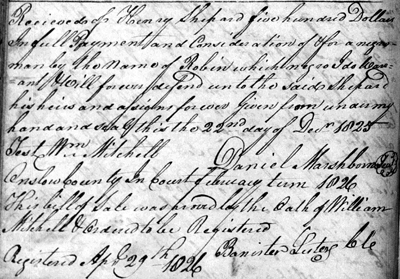 Recieved of Henry Shepard five hundred Dollars
In full Payment and Consideration of & for a negro
man by the Name of Robin which negro I do Warr-
ant & Will forever defend unto the said Shepard
his heirs and assigns forever Given from under my
hand and seal this the 22nd day of Decr 1825
Test Wm Mitchell Daniel Marshborn
Onslow County In Court February term 1826
This bill of Sale was proved by the Oath of William
Mitchell & Ordered to be Registered
Registered Apl 29th 1826 Banister Lester